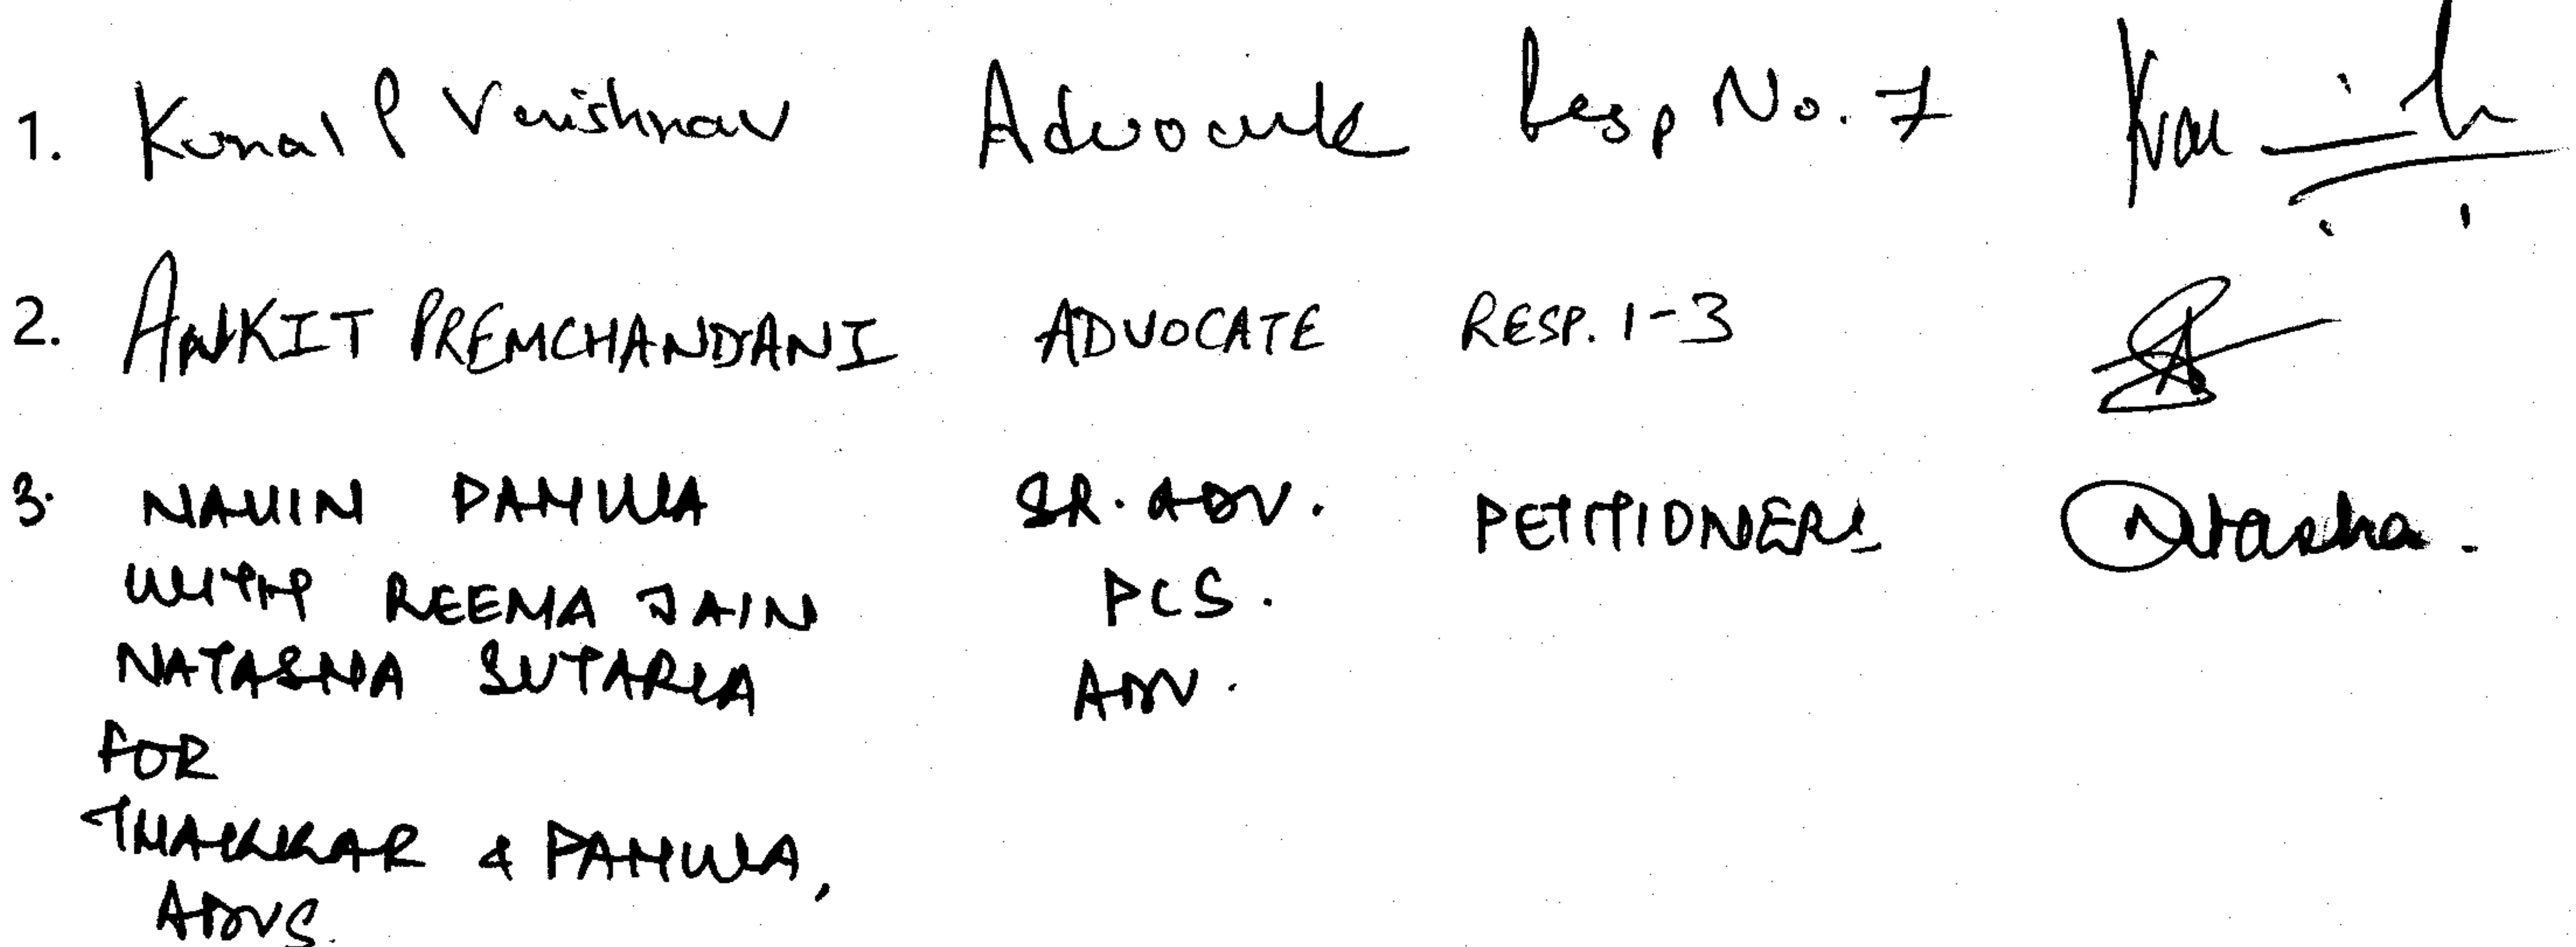 1. Kunal P Vaishnav Advocate Resp No. 7
2. ANKIT PREMCHANDANI ADVOCATE RESP. 1-3
3. NAVIN PAHWA SR. ADV. PETITIONERS Natasha.
WITH REEMA JAIN PCS.
NATASHA SUTARIA ADV.
FOR
THAKKAR & PAHWA,
ADVS.